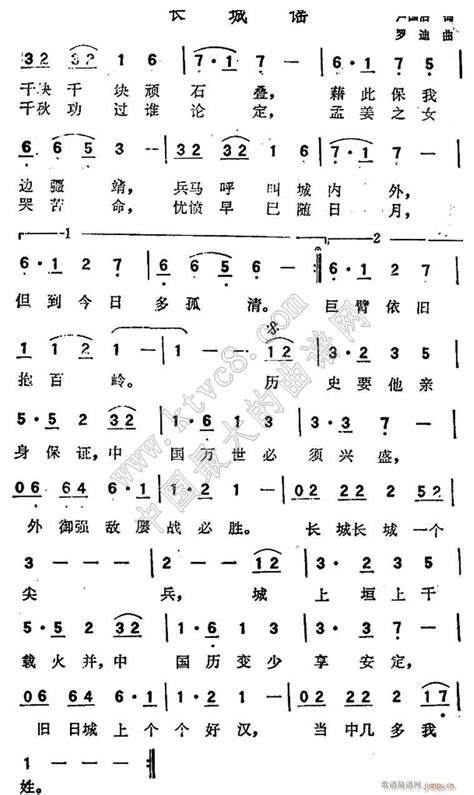 长城谣
卢国沾 词
罗迪 曲
32 32 1 6 | 7·1 7 - | 6·1 3 2
千块千块顽石叠，藉此保我
千秋功过谁论定，孟姜之女
6 6 5 3 - | 32 32 1 2 | 7·1 7 -
边疆靖，兵马呼叫城内外，
哭苦命，忧愤早已随日月，
1 2
6·1 2 7 | 6 6 5 6 - :|| 6·1 2 7
但到今日多孤清。巨臂依旧
1 - - - | 1 - - 12 | 3·2 3 5
抱百龄。历史要他亲
5·5 2 32 | 1·6 1 3 | 3·3 7 -
身保证，中国万世必须兴盛，
06 64 6·1 | 1 - - - | 02 22 2 52
外御强敌屡战必胜。长城长城一个
3 - - - | 2 - - 12 | 3·2 3 5
尖兵，城上垣上千
5·5 2 32 | 1·6 1 3 | 3·3 7 -
载火并，中国历变少享安定，
06 64 6·1 | 1 - - - | 02 22 2 17
旧日城上个个好汉，当中几多我
1 - - - :||
姓。
www.ktvc8.com
中国最大的曲谱网
歌谱简谱网
jianpu.cn